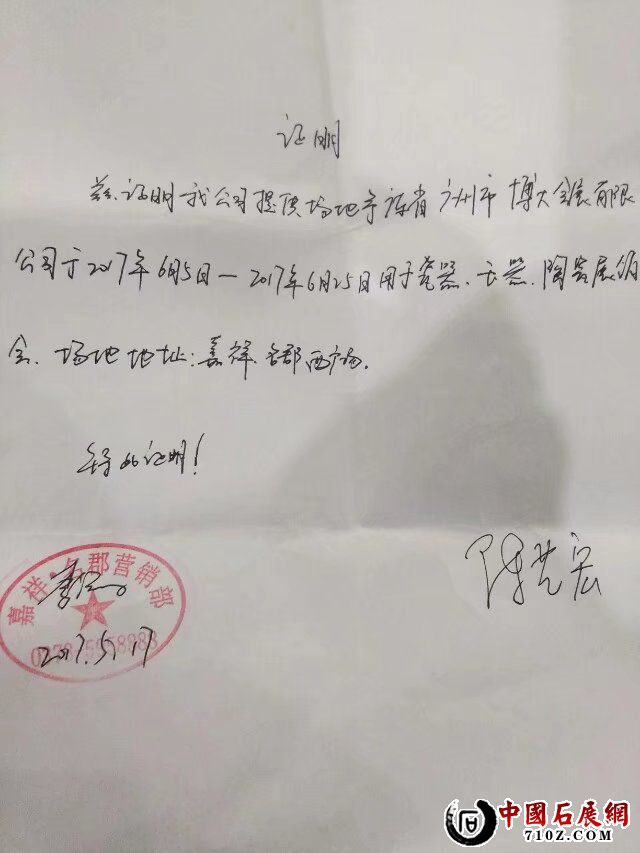 证明
兹证明我公司提供场地予广州市博大会展有限
公司于2017年6月5日—2017年6月25日用于瓷器、玉器、陶瓷展销
会、场地地址：嘉祥名郡西广场。
特此证明！
嘉祥名郡营销部
2017.5.17
中國石展網
710Z.COM